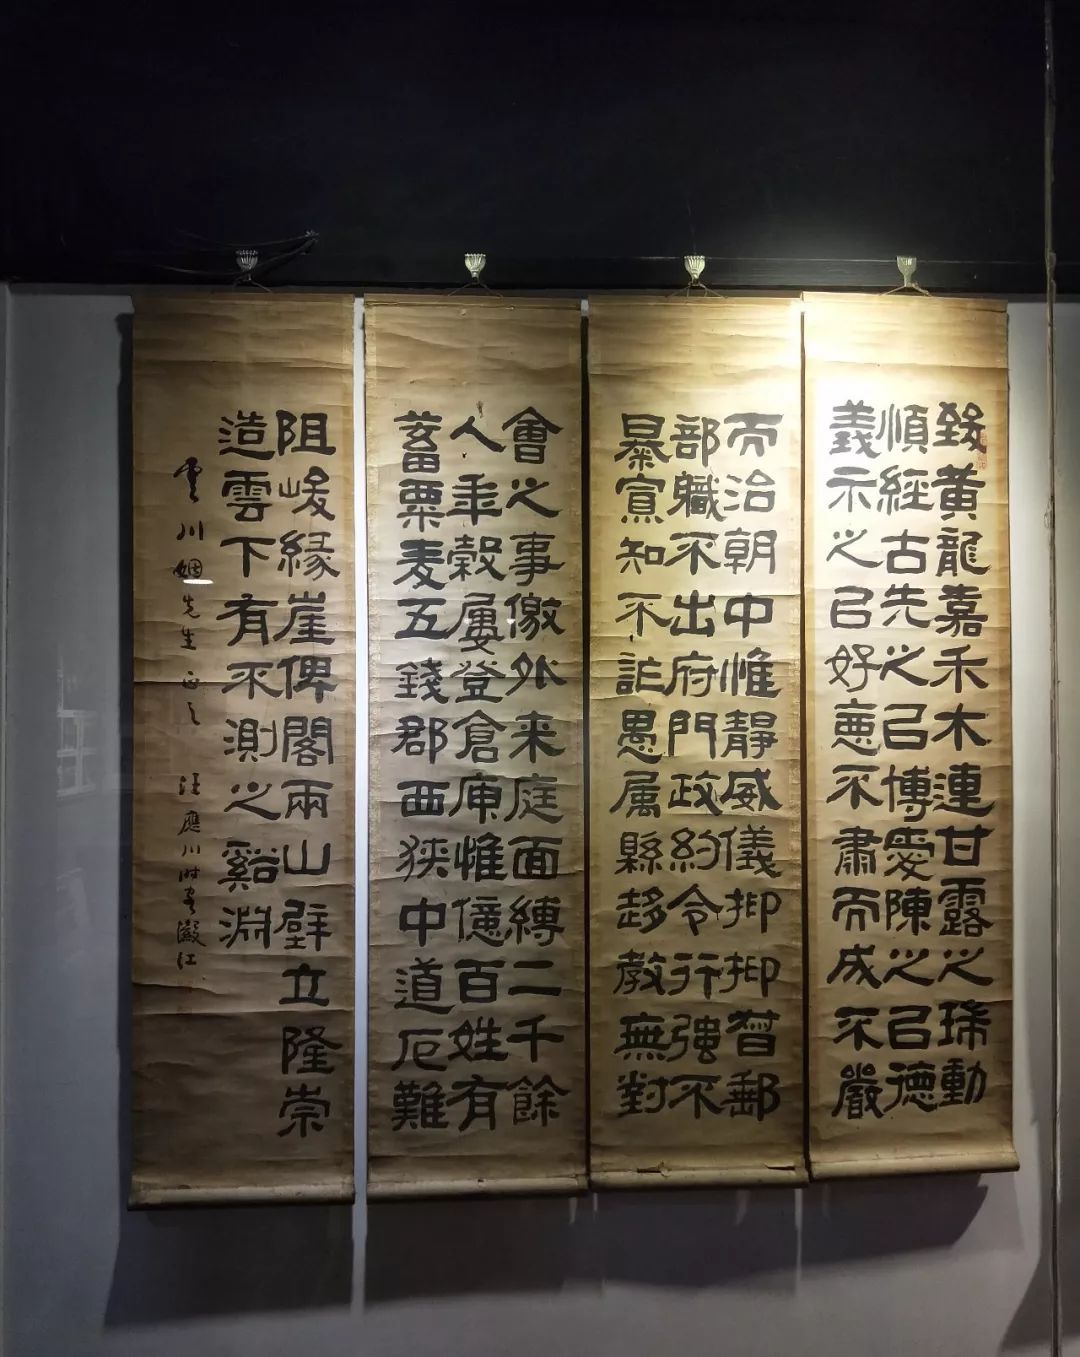 致黄龍嘉禾木連甘露之瑞動
順經古先之㠯博愛陳之㠯德
義示之㠯好惡不肅而成不嚴
而治朝中惟靜威儀抑抑督郵
部職不出府門政約令行强不
暴寡知不詐愚属縣趍教無對
會之事徼外来庭面縛二千餘
人年穀屢登倉庾惟億百姓有
蓄粟麦五錢郡西狭中道厄難
阻峻緣崖俾閣兩山壁立隆崇
造雲下有不測之谿淵
雲川姻先生正之 汪應川時客瀫江